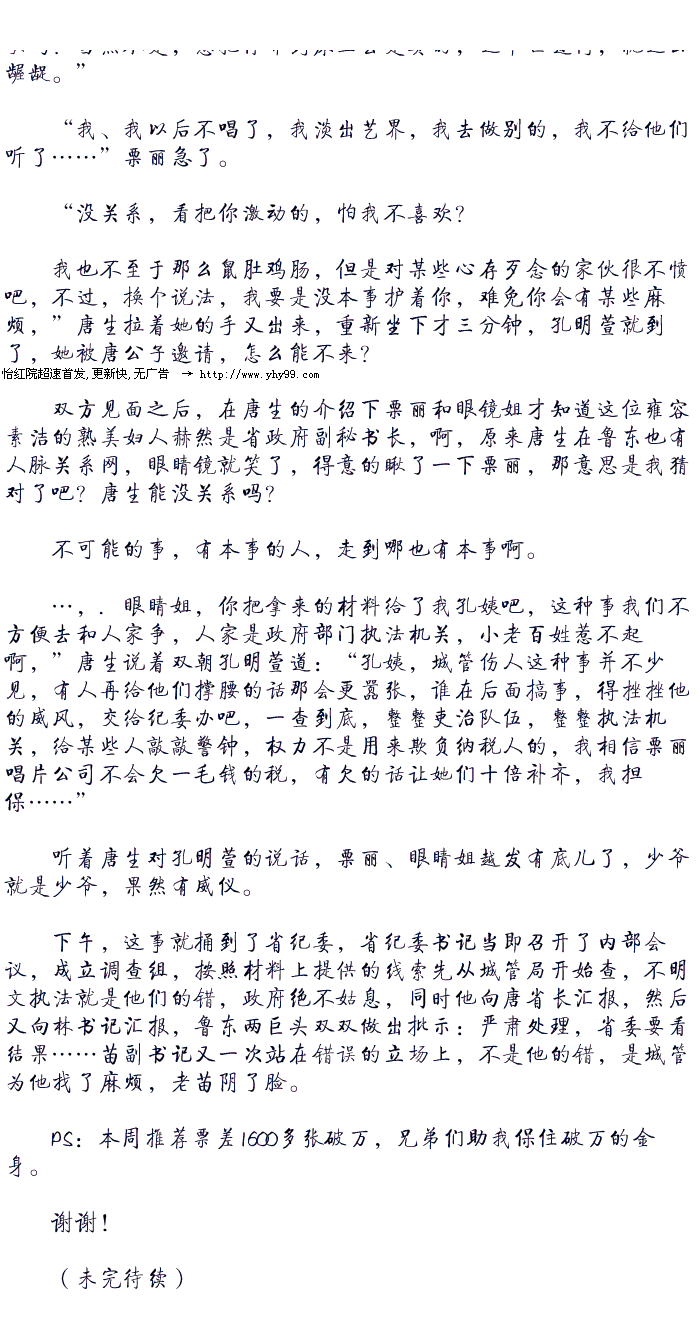 龌龊。”
“我、我以后不唱了，我淡出艺界，我去做别的，我不给他们
听了……”栗丽急了。
“没关系，看把你激动的，怕我不喜欢？
我也不至于那么鼠肚鸡肠，但是对某些心存歹念的家伙很不愤
吧，不过，换个说法，我要是没本事护着你，难免你会有某些麻
烦，”唐生拉着她的手又出来，重新坐下才三分钟，孔明萱就到
了，她被唐公子邀请，怎么能不来？
怡红院超速首发,更新快,无广告 → http://www.yhy99.com
双方见面之后，在唐生的介绍下栗丽和眼镜姐才知道这位雍容
素洁的熟美妇人赫然是省政府副秘书长，啊，原来唐生在鲁东也有
人脉关系网，眼睛镜就笑了，得意的瞅了一下栗丽，那意思是我猜
对了吧？唐生能没关系吗？
不可能的事，有本事的人，走到哪也有本事啊。
…，．眼睛姐，你把拿来的材料给了我孔姨吧，这种事我们不
方便去和人家争，人家是政府部门执法机关，小老百姓惹不起
啊，”唐生说着双朝孔明萱道：“孔姨，城管伤人这种事并不少
见，有人再给他们撑腰的话那会更嚣张，谁在后面搞事，得挫挫他
的威风，交给纪委办吧，一查到底，整整吏治队伍，整整执法机
关，给某些人敲敲警钟，权力不是用来欺负纳税人的，我相信栗丽
唱片公司不会欠一毛钱的税，有欠的话让她们十倍补齐，我担
保……”
听着唐生对孔明萱的说话，栗丽、眼睛姐越发有底儿了，少爷
就是少爷，果然有威仪。
下午，这事就捅到了省纪委，省纪委书记当即召开了内部会
议，成立调查组，按照材料上提供的线索先从城管局开始查，不明
文执法就是他们的错，政府绝不姑息，同时他向唐省长汇报，然后
又向林书记汇报，鲁东两巨头双双做出批示：严肃处理，省委要看
结果……苗副书记又一次站在错误的立场上，不是他的错，是城管
为他找了麻烦，老苗阴了脸。
PS：本周推荐票差1600多张破万，兄弟们助我保住破万的金
身。
谢谢！
（未完待续）